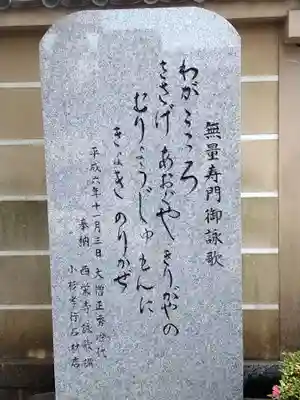 無量寿門御詠歌
わがこころ
ささげあおがや きりがやの
むりょうじゅもんに
きよき のりかぜ
平成六年十一月三日 大僧正
奉納 西栄寺詠歌講
小杉
石材店